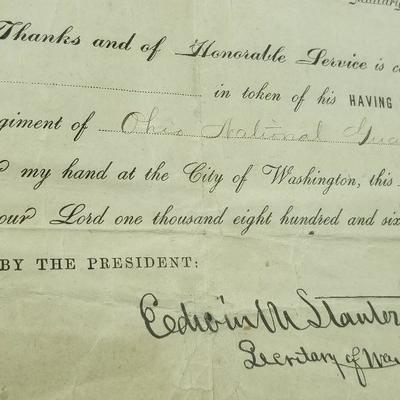 Thanks and of Honorable Service is c
in token of his HAVING
giment of Ohio National Gua
my hand at the City of Washington, this
our Lord one thousand eight hundred and six
BY THE PRESIDENT:
Edwin M Stanton
Secretary of War